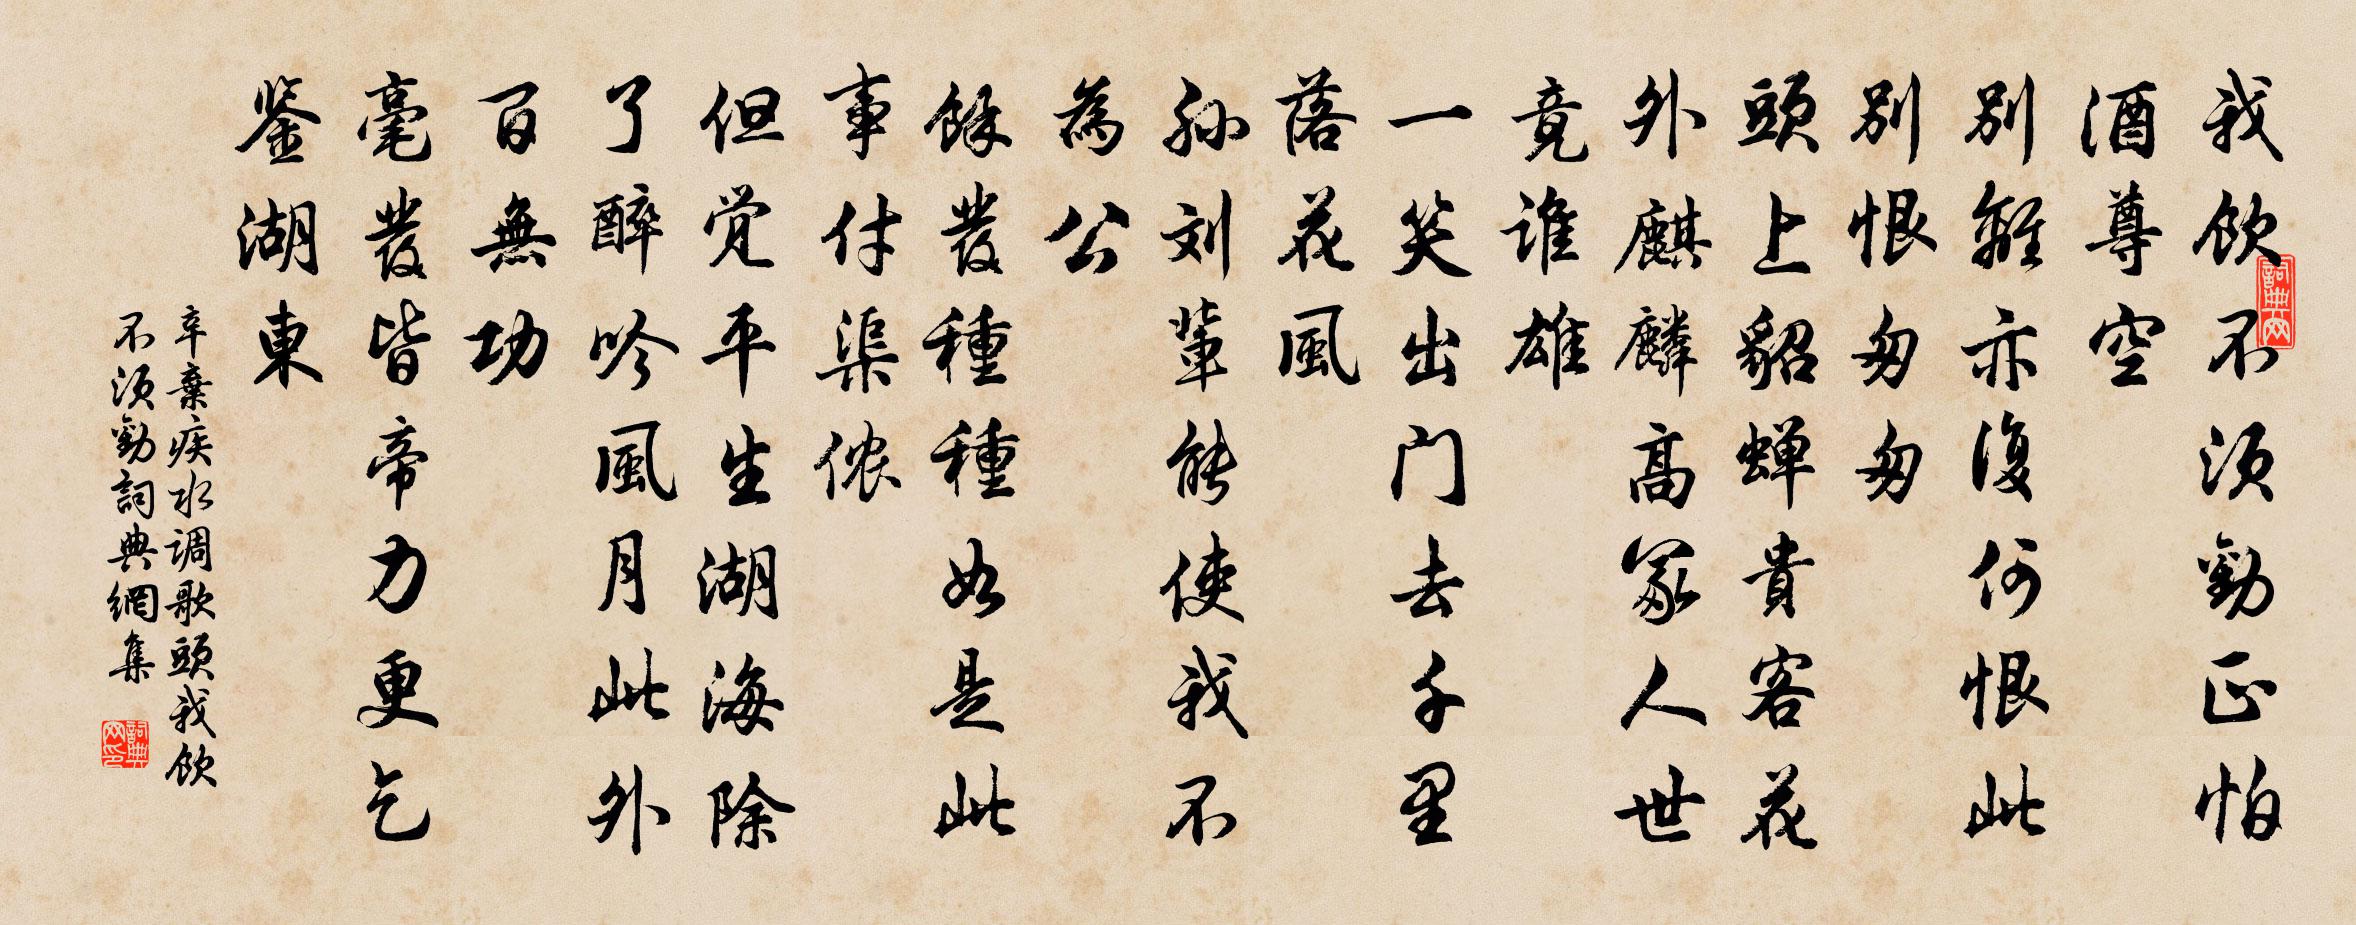 我飲不須勸正怕
酒尊空
別離亦復何恨此
別恨匆匆
頭上貂蟬貴客花
外麒麟高冢人世
竟誰雄
一笑出门去千里
落花風
孙刘輩能使我不
為公
餘發種種如是此
事付渠侬
但覚平生湖海除
了醉吟風月此外
百無功
毫發皆帝力更乞
鉴湖東
辛棄疾水调歌頭我飲
不須勸詞典網集
詞典网
詞典网印